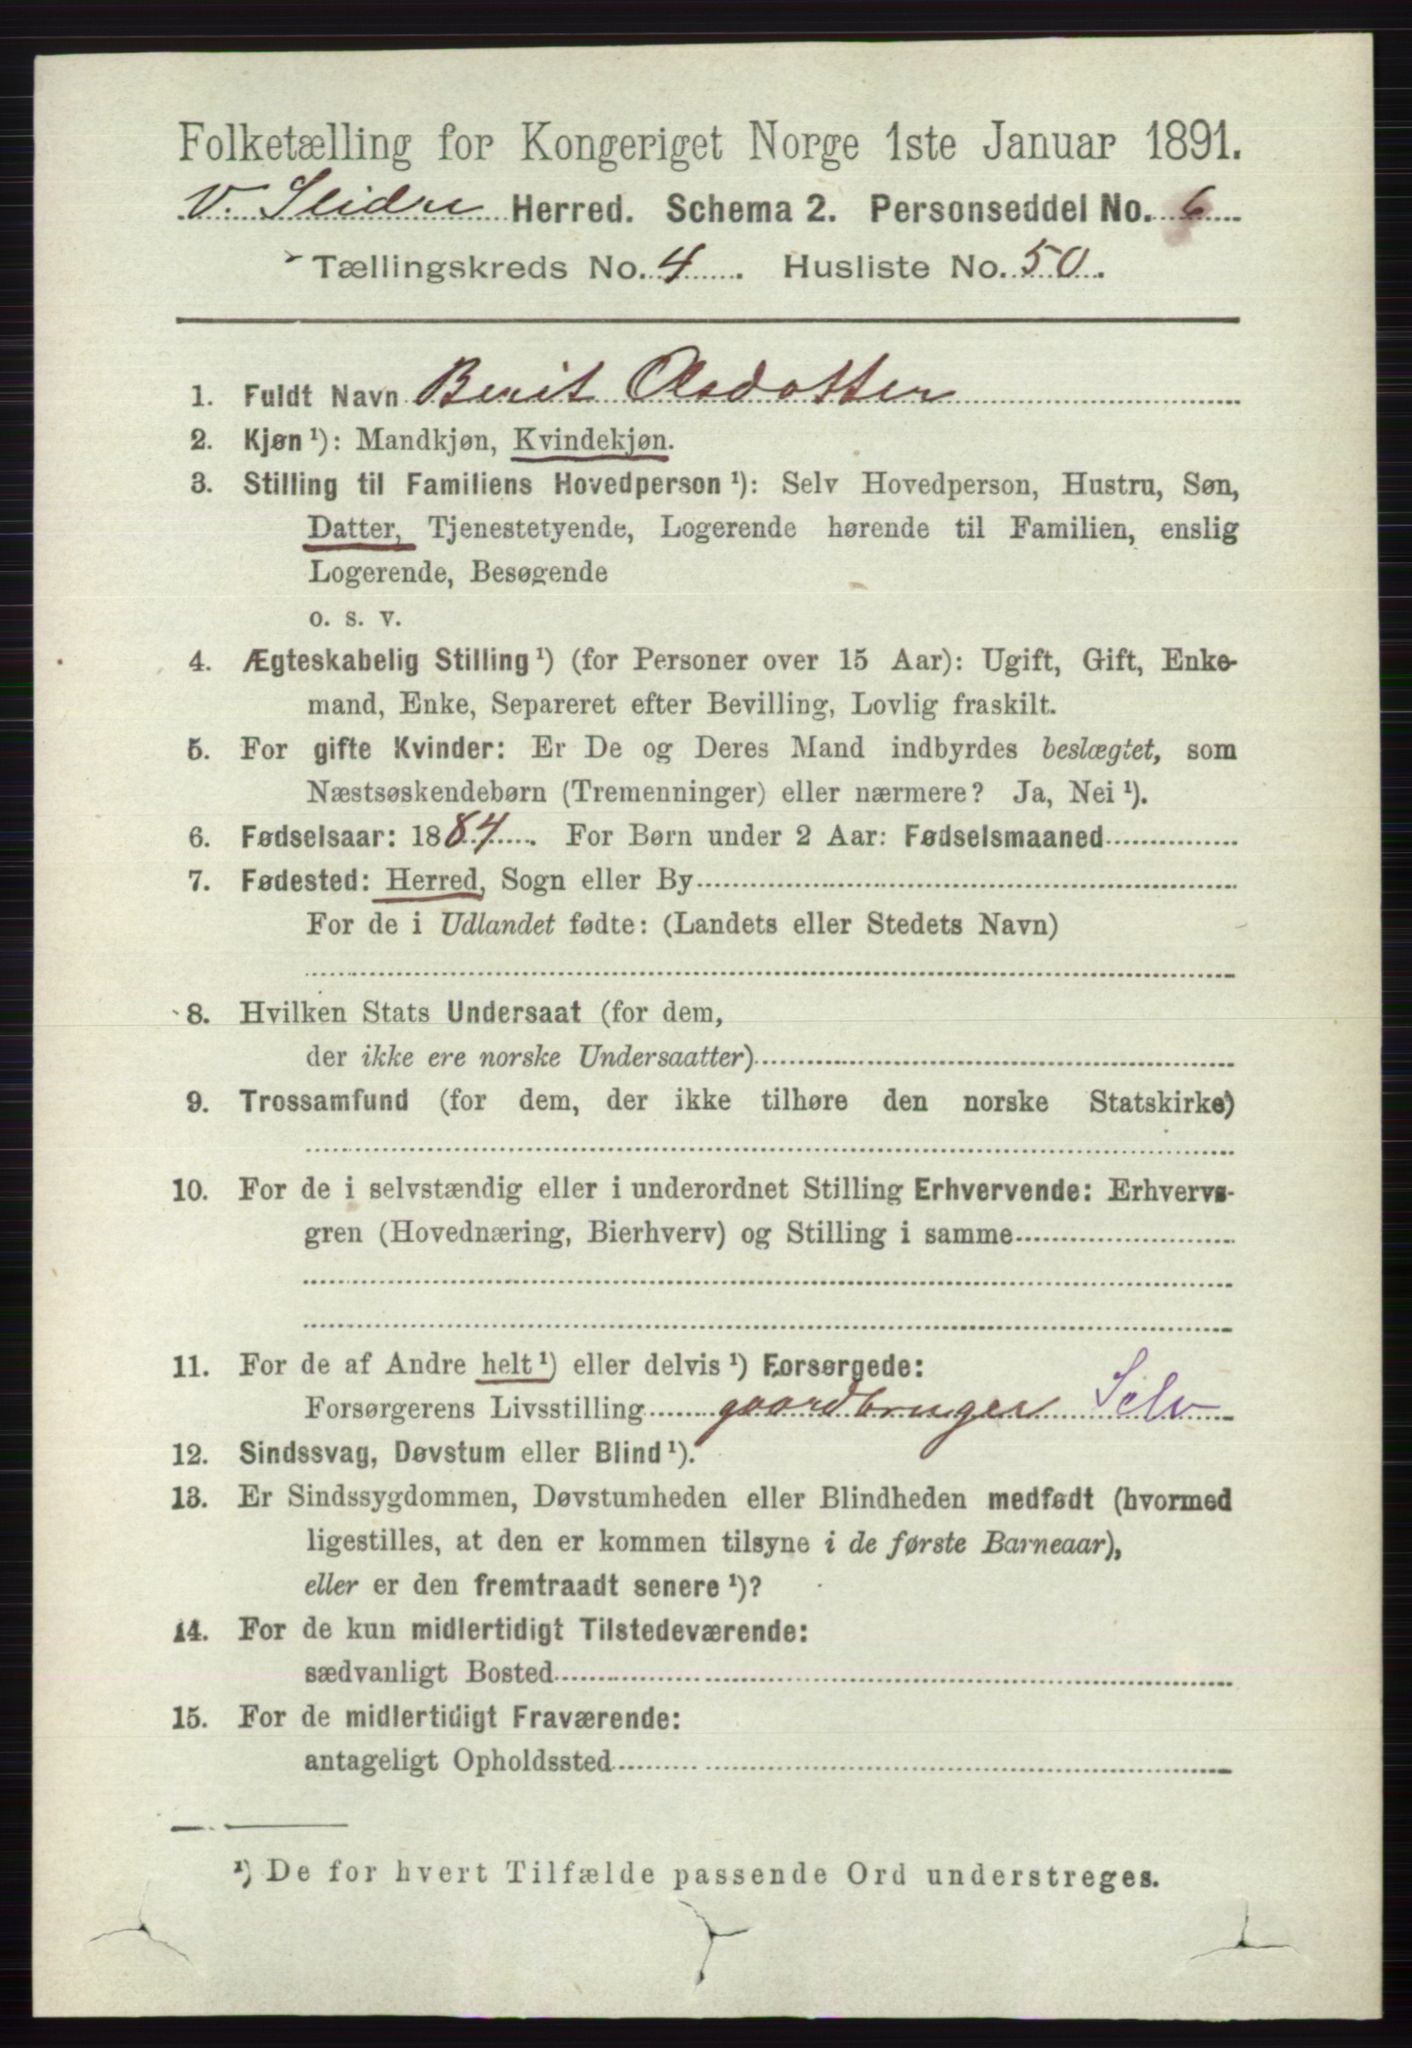 Folketælling for Kongeriget Norge 1ste Januar 1891.
V. Slidre Herred. Schema 2. Personseddel No. 6
Tællingskreds No. 4. Husliste No. 50.
1. Fuldt Navn Berit Olsdotter
2. Kjøn ¹): Mandkjøn, Kvindekjøn.
3. Stilling til Familiens Hovedperson ¹): Selv Hovedperson, Hustru, Søn,
Datter, Tjenestetyende, Logerende hørende til Familien, enslig
Logerende, Besøgende
o. s. v.
4. Ægteskabelig Stilling ¹) (for Personer over 15 Aar): Ugift, Gift, Enke-
mand, Enke, Separeret efter Bevilling, Lovlig fraskilt.
5. For gifte Kvinder: Er De og Deres Mand indbyrdes beslægtet, som
Næstsøskendebørn (Tremenninger) eller nærmere? Ja, Nei ¹).
6. Fødselsaar: 1884. For Børn under 2 Aar: Fødselsmaaned
7. Fødested: Herred, Sogn eller By
For de i Udlandet fødte: (Landets eller Stedets Navn)
8. Hvilken Stats Undersaat (for dem,
der ikke ere norske Undersaatter)
9. Trossamfund (for dem, der ikke tilhøre den norske Statskirke)
10. For de i selvstændig eller i underordnet Stilling Erhvervende: Erhvervs-
gren (Hovednæring, Bierhverv) og Stilling i samme
11. For de af Andre helt ¹) eller delvis ¹) Forsørgede:
Forsørgerens Livsstilling gaardbruger Selv
12. Sindssvag, Døvstum eller Blind ¹).
13. Er Sindssygdommen, Døvstumheden eller Blindheden medfødt (hvormed
ligestilles, at den er kommen tilsyne i de første Barneaar),
eller er den fremtraadt senere ¹)?
14. For de kun midlertidigt Tilstedeværende:
sædvanligt Bosted
15. For de midlertidigt Fraværende:
antageligt Opholdssted
¹) De for hvert Tilfælde passende Ord understreges.